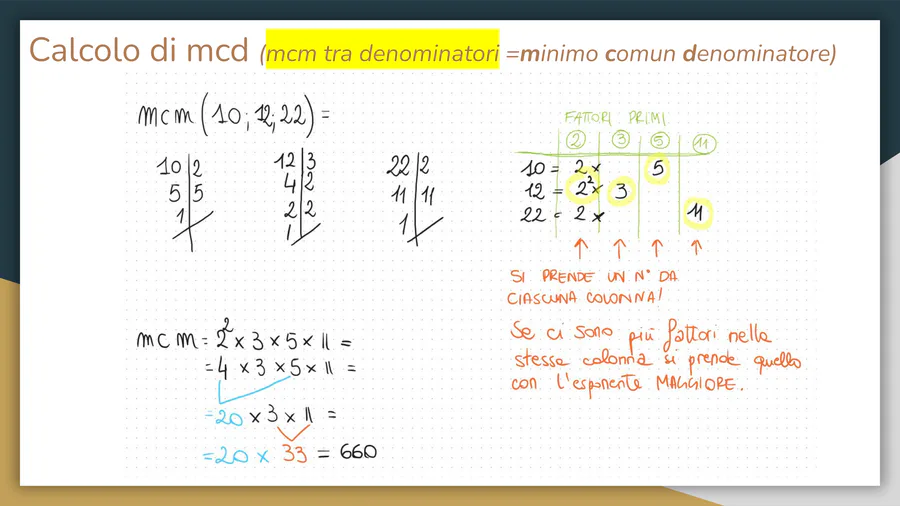 Calcolo di mcd (mcm tra denominatori =minimo comun denominatore)
mcm(10;12;22)=
10|2
5|5
1|
12|3
4|2
2|2
1|
22|2
11|11
1|
FATTORI PRIMI
2 3 5 11
10 = 2 × 5
12 = 2² × 3
22 = 2 × 11
SI PRENDE UN N° DA
CIASCUNA COLONNA!
Se ci sono più fattori nella
stessa colonna si prende quello
con l'esponente MAGGIORE.
mcm = 2² × 3 × 5 × 11 =
= 4 × 3 × 5 × 11 =
= 20 × 3 × 11 =
= 20 × 33 = 660